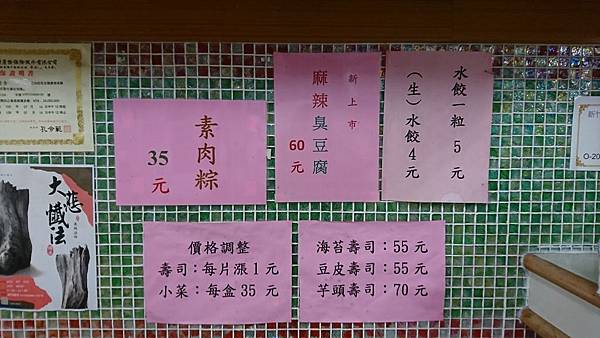 保證書
孔令範
大悲
懺法
素肉粽
35
元
新上市
麻辣臭豆腐
60
元
水餃一粒5元
(生)水餃4元
價格調整
壽司：每片漲1元
小菜：每盒35元
海苔壽司：55元
豆皮壽司：55元
芋頭壽司：70元
新竹
O-20